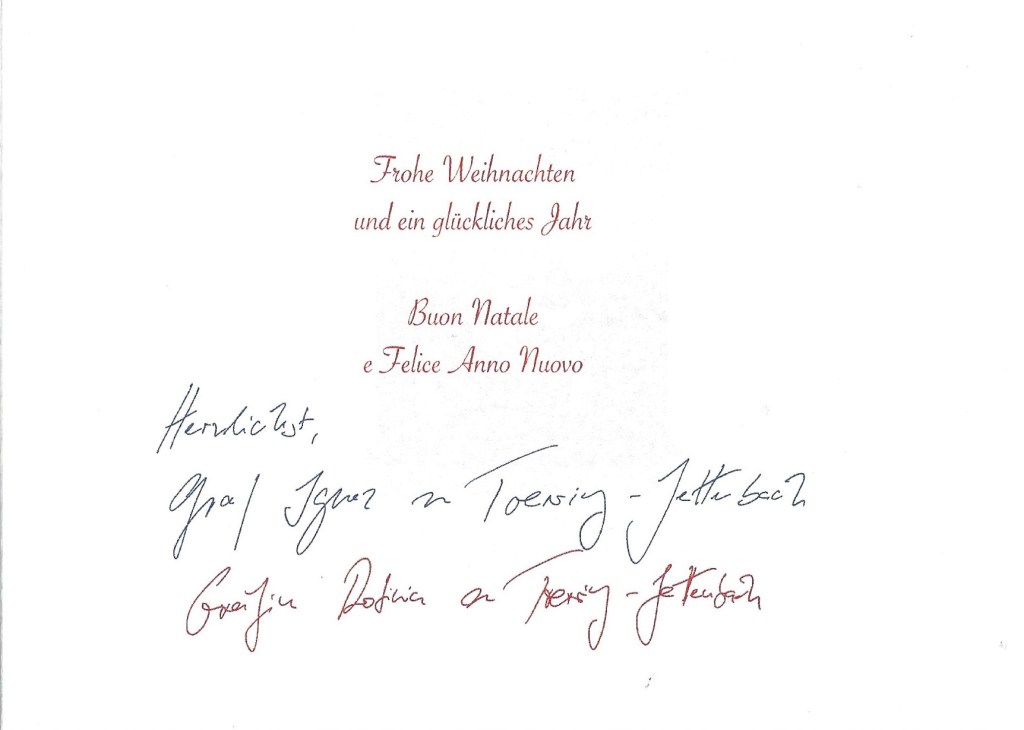 Frohe Weihnachten
und ein glückliches Jahr
Buon Natale
e Felice Anno Nuovo
Herzlichst,
Graf Ignaz zu Toerring-Jettenbach
Gräfin zu Toerring-Jettenbach